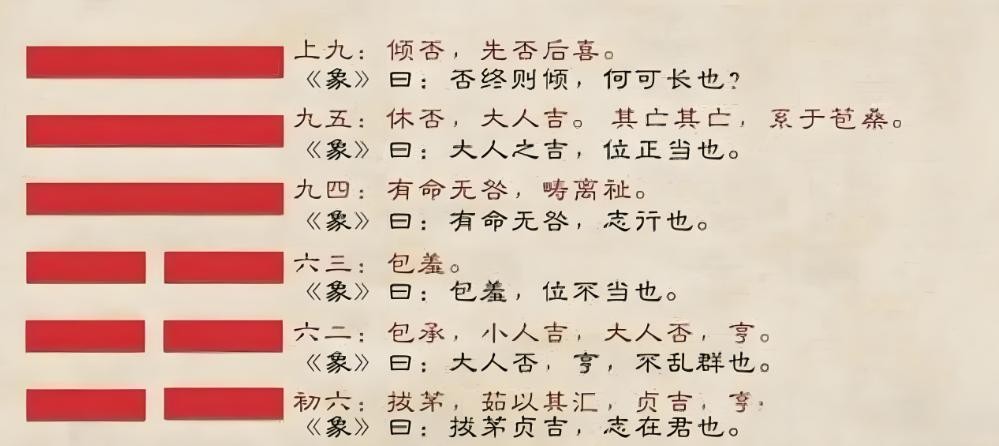 上九：倾否，先否后喜。
《象》曰：否终则倾，何可长也？
九五：休否，大人吉。 其亡其亡，系于苞桑。
《象》曰：大人之吉，位正当也。
九四：有命无咎，畴离祉。
《象》曰：有命无咎，志行也。
六三：包羞。
《象》曰：包羞，位不当也。
六二：包承，小人吉，大人否，亨。
《象》曰：大人否，亨，不乱群也。
初六：拔茅，茹以其汇，贞吉，亨。
《象》曰：拔茅贞吉，志在君也。